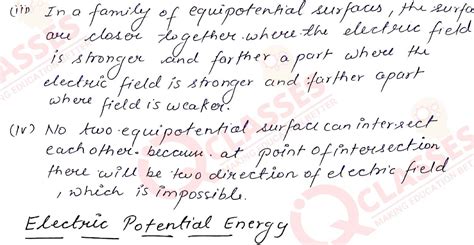 (iii) In a family of equipotential surfaces, the surfa
are closer together where the electric field
is stronger and farther apart where the
electric field is stronger and farther apart
where field is weaker.
(iv) No two equipotential surface can intersect
each other becum. at point of intersection
there will be two direction of electric field
, which is impossible.
Electric Potential Energy
IQ CLASSES
MAKING EDUCATION BETTER